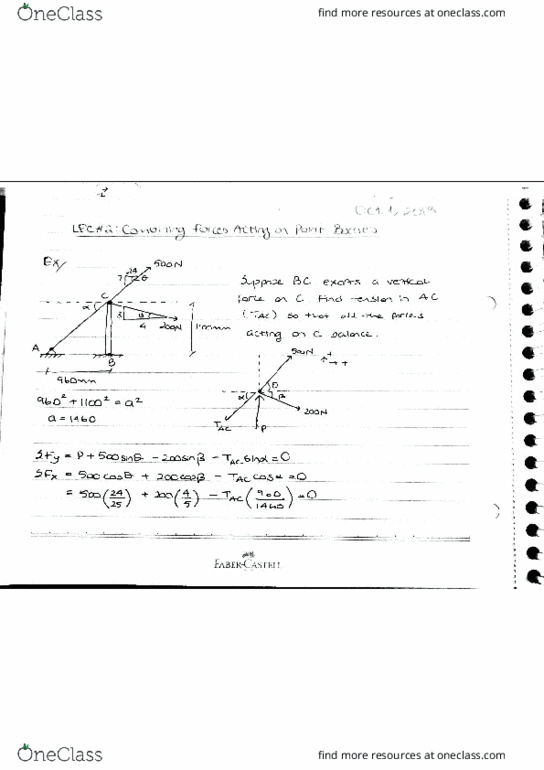 OneClass find more resources at oneclass.com
Oct 1, 2019
LEC#2: Combining Forces Acting on Point Bodies
Ex/
500N
24
7
θ
C
α
3
4
200N
A
B
960mm
960² + 1100² = a²
a = 1460
Suppose BC exerts a vertical
force on C. Find tension in AC
(TAC) so that all the forces
acting on C balance.
500N
+
+
θ
α
β
200N
TAC
P
ΣFy = P + 500sinθ - 200sinβ - TAC sinα = 0
ΣFx = 500cosθ + 200cosβ - TAC cosα = 0
= 500(24/25) + 200(4/5) - TAC(960/1460) = 0
FABER-CASTELL
OneClass find more resources at oneclass.com